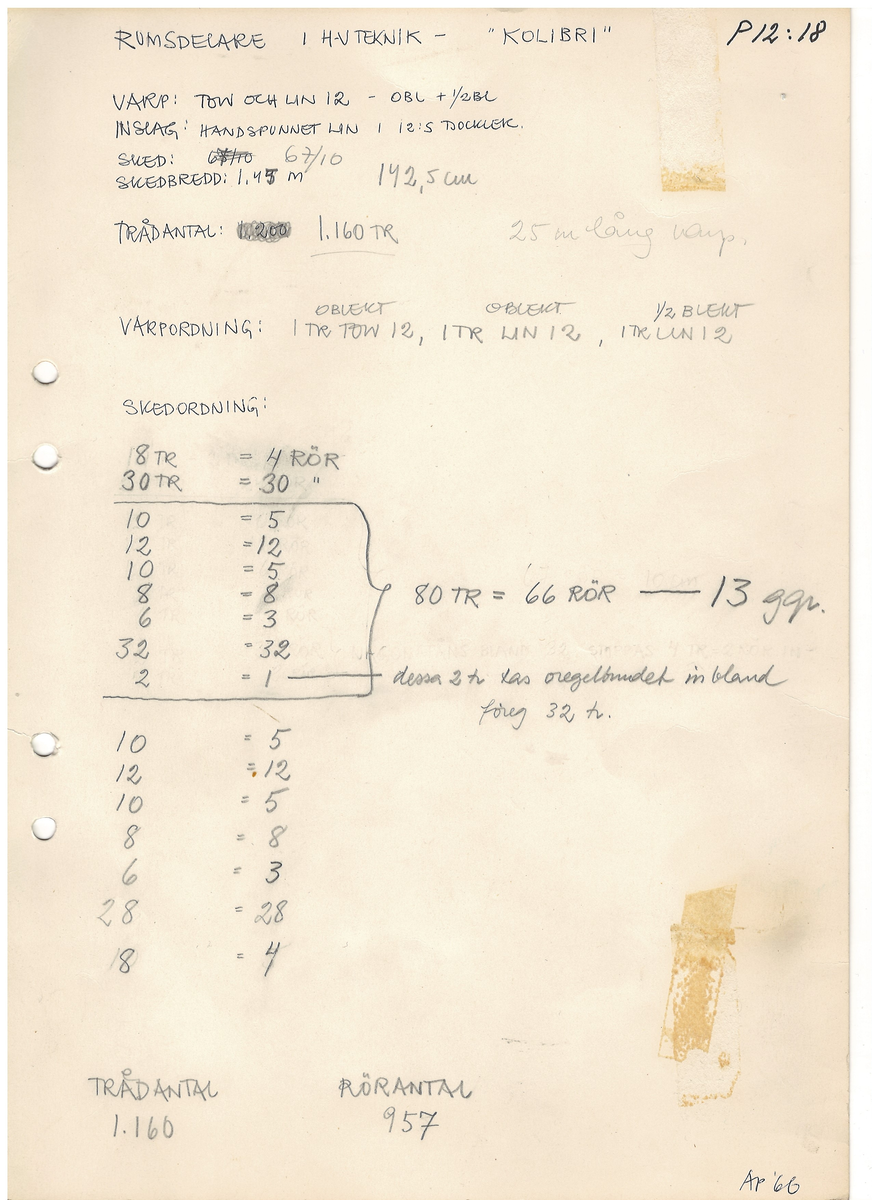 RUMSDELARE I HV TEKNIK - "KOLIBRI" P12:18
VARP: TOW OCH LIN 12 - OBL + 1/2 BL
INSLAG: HANDSPUNNET LIN I 12:S DOCKLEK.
SKED: 67/10
SKEDBREDD: 1.45 M 142,5 cm
TRÅDANTAL: 1.200 1.160 TR 25 m lång varp.
OBLEKT OBLEKT 1/2 BLEKT
VARPORDNING: 1 TR TOW 12, 1 TR LIN 12, 1 TR LIN 12
SKEDORDNING:
18 TR = 4 RÖR
30 TR = 30 "
10 = 5
12 = 12
10 = 5
8 = 8
6 = 3
80 TR = 66 RÖR — 13 ggr.
32 = 32
2 = 1 — dessa 2 tr tas oregelbundet in bland
föreg 32 tr.
10 = 5
12 = 12
10 = 5
8 = 8
6 = 3
28 = 28
18 = 4
TRÅDANTAL RÖRANTAL
1.160 957
AP '66